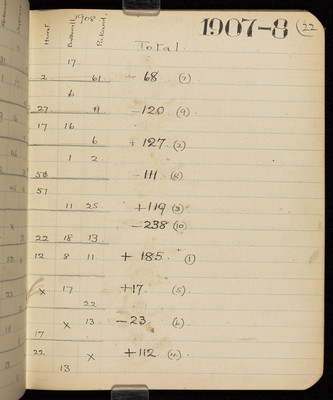 1907-8
22
1908
Hurst. Bucknill Pickard.
Total.
17
2 61 - 68 (7)
6
27 11 -120 (9)
17 16
6 + 127 (2)
1 2
-111 (8)
58
57
11 25 +119 (3)
-238 (10)
22 18 13
12 8 11 + 185. (1)
x 17 +17 (5)
22
x 13 -23. (6)
17
22 x +112 (4)
13